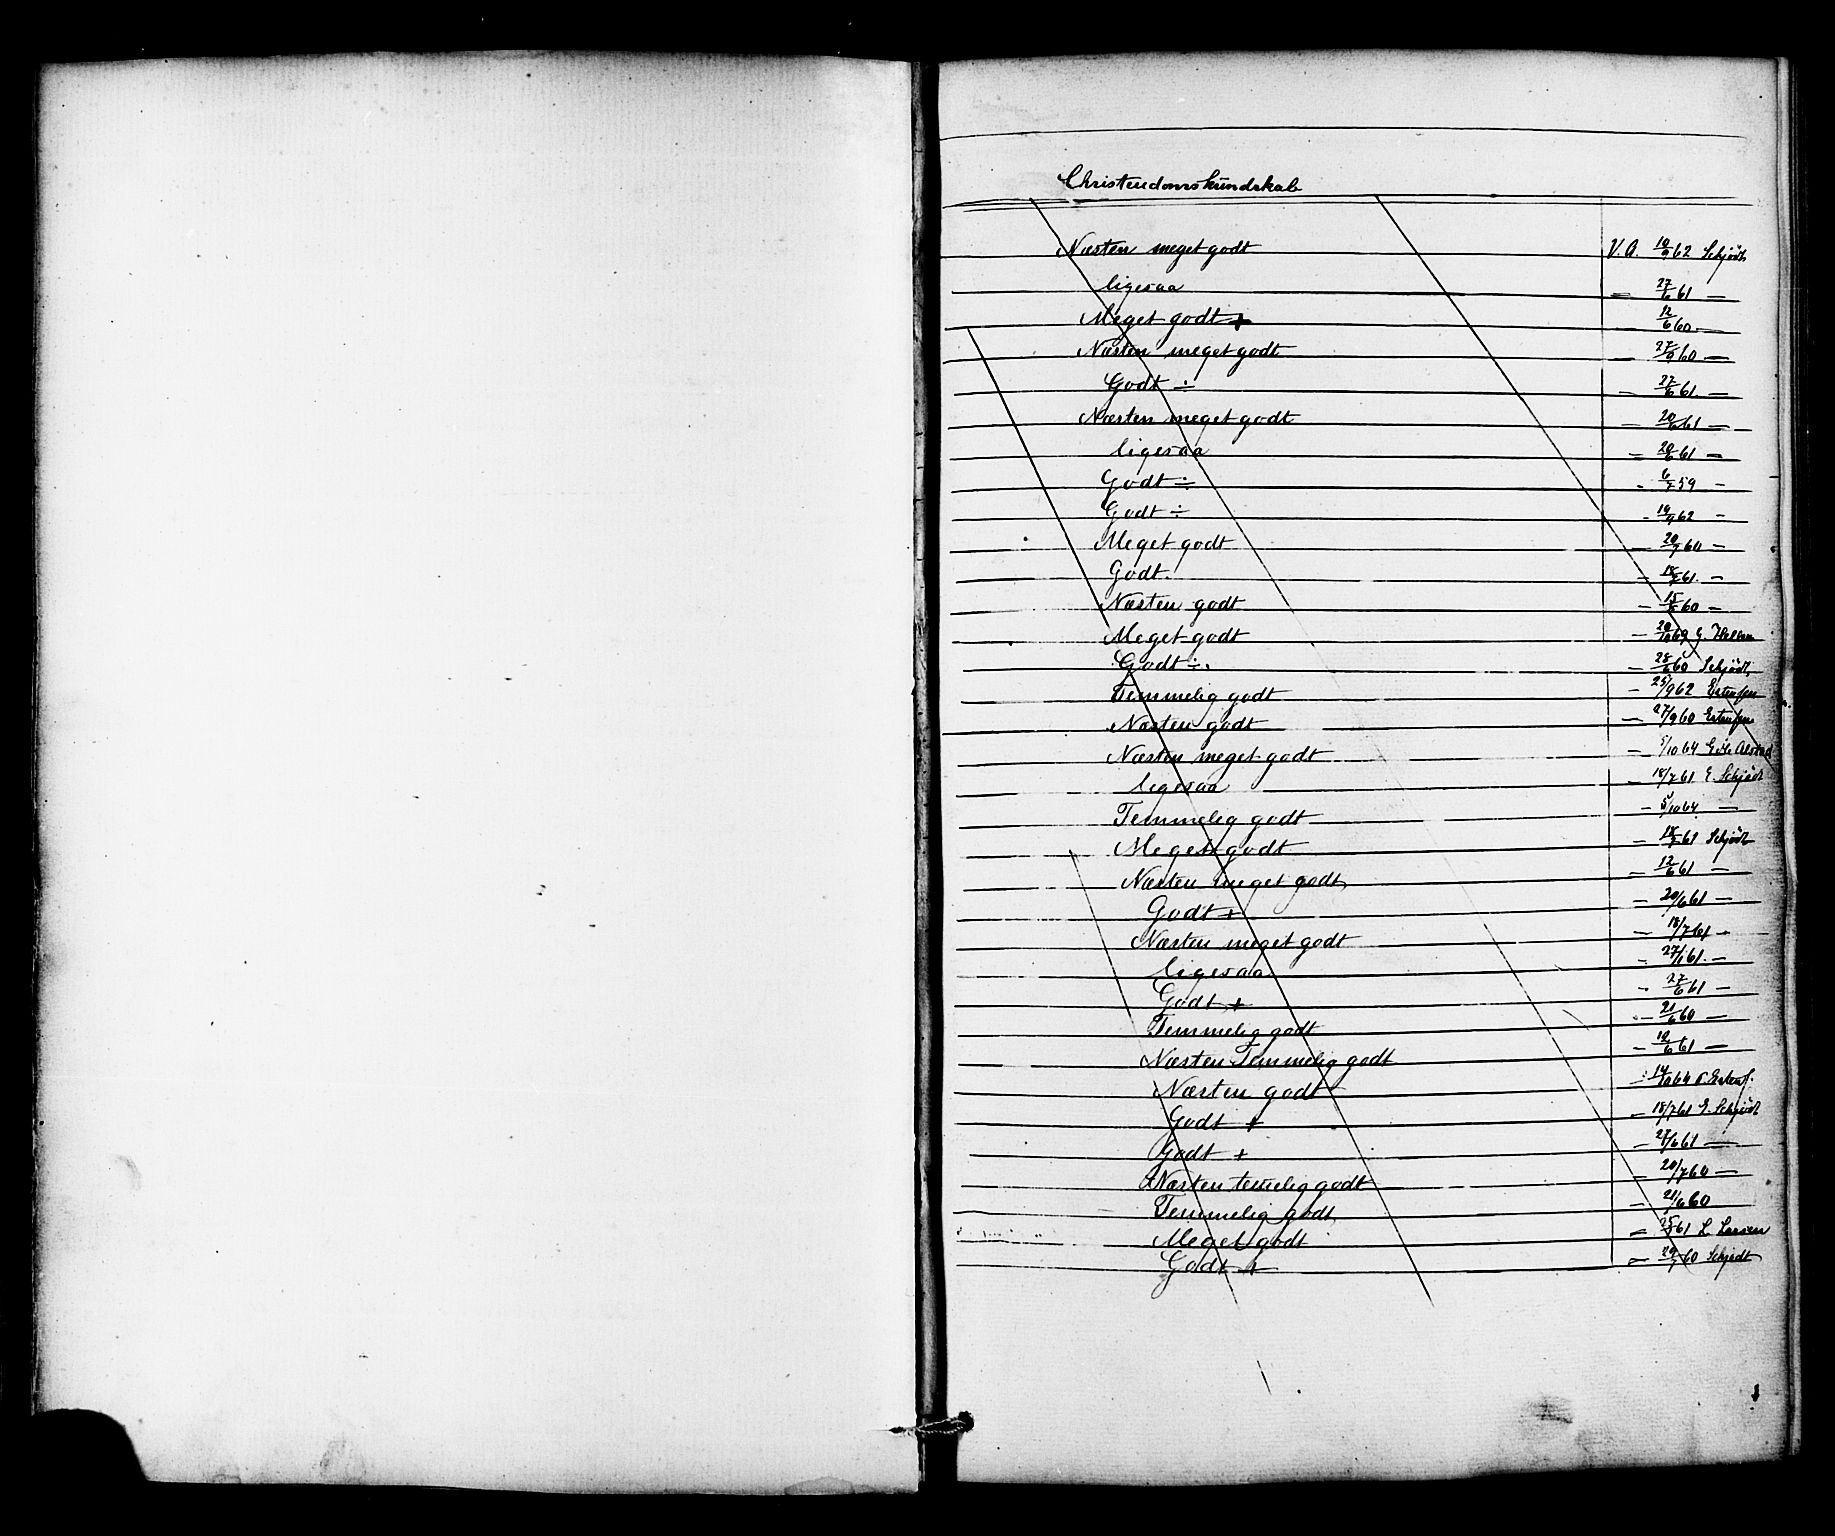 Christendomskundskab
Næsten meget godt V. A. 10/9 62 Schjødt
ligesaa — 27/6 61 —
Meget godt + 12/6 60 —
Næsten meget godt — 27/9 60 —
Godt ÷ — 27/6 61. —
Næsten meget godt — 20/6 61 —
ligesaa — 20/6 61 —
Godt ÷ - 6/7 59 -
Godt ÷ - 19/9 62 -
Meget godt — 20/7 60 -
Godt. — 18/7 61. -
Næsten godt - 15/6 60 -
Meget godt — 20/10 69
Godt ÷. — 28/6 60 Schjødt,
Temmelig godt — 25/9 62 Estensen
Næsten godt — 27/9 60 Estensen
Næsten meget godt — 5/10 64
ligesaa — 18/7 61 E. Schjødt
Temmelig godt - 5/10 64 —
Meget godt — 18/7 61 Schjødt
Næsten meget godt — 12/6 61 —
Godt + — 20/6 61 —
Næsten meget godt — 18/7 61 -
ligesaa - 61. -
Godt + - 27/6 61 -
Temmelig godt — 21/6 60 —
Næsten Temmelig godt — 61 —
Næsten godt 14/10 64
Godt + — 18/7 61 E. Schjødt
Godt + — 27/6 61 —
Næsten temelig godt — 20/7 60 —
Temmelig godt — 21/6 60
Meget godt — 61 L. Larsen
Godt + — 60 Schjødt